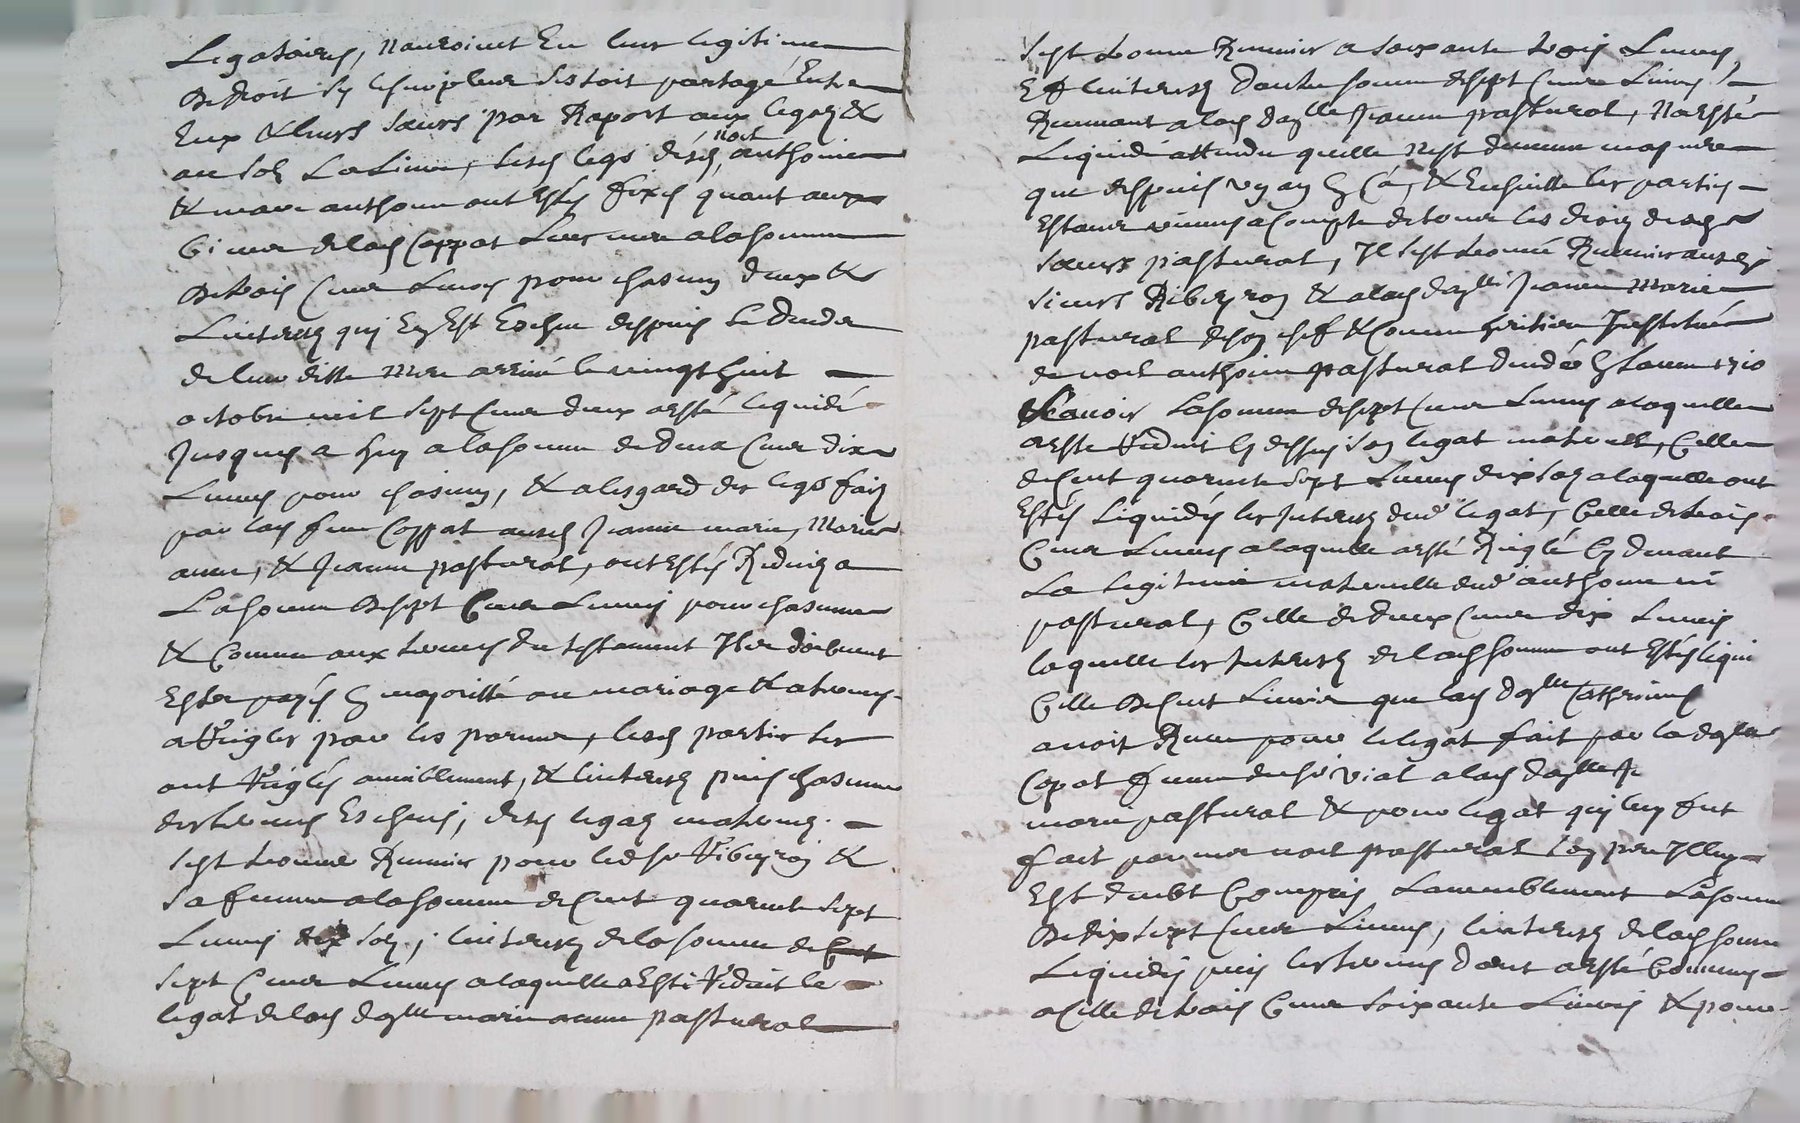 Legataires, n'auroint eu leur legitime
De droit sy le surplus s'estoit partagé Entre
Eux & leurs sœurs par Raport aux legaz &
au sol la livre, lesd legs desd noel anthoine
& marc anthoine ont estés fixés quant aux
biens de lad Coppat leur mere a la somme
De trois Cens Livres pour chascung deux &
L'interestz quy En Est Escheu despuis le deceds
de leur ditte Mere arrivé le vingt huit
octobre mil sept Cens deux a esté liquidé
Jusques a huy a la somme de deux Cens dix
Livres pour chascung, & a l'esgard des legs faitz
par lad feue Coppat ausd Jeanne marie, Marie
anne, & Jeanne pastural, ont estés Reduitz a
La somme De sept Cens Livres pour chascune
& Comme aux termes du testament Ils doibvent
Ester payés En majoritté ou mariage & a termes
a Reigler par les parans, lesd parties les
ont Reiglés amiablement, & l'interestz puis chascune
des termes Escheus, desd legaz maternels
s'est trouvé Revenir pour led sr Ribeyroy &
sa femme a la somme de Cent quarante sept
Livres dix solz; l'interestz de la somme de
sept Cens Livres a laquelle a Esté Reduit le
legat de lad daylle marie anne pastural
s'est trouvé Revenir a soixante trois Livres,
Et l'interestz d'autre somme de sept Cens Livres
Revenant a lad daylle Jeanne pastural, N'a esté
Liquidé attendu qu'elle n'est devenue majeure
que despuis un an En Ça, & Ensuitte les parties
Estant venues a Compte de tous les droitz desd
sœurs pastural, Il s'est trouvé Revenir ausd
sieurs Ribeyroy & a lad daylle Jeanne Marie
pastural de son chef & Comme heritiere Instituée
de noel anthoine pastural decedé En l'année 1710
Scavoir La somme de sept Cens Livres a laquelle
a esté Reduit Cy dessus son legat maternel, Celle
de Cent quarante sept Livres dix solz a laquelle ont
Estés Liquidés les Interestz dud legat, Celle de trois
Cens Livres a laquelle a esté Reiglé Cy devant
La legitime maternelle dud anthoine
pastural, Celle de deux Cens dix Livres
laquelle les Interestz de lad somme ont Estés liqui
Celle De Cent Livres que lad daylle Catherine
avoit Receu pour le legat fait par la daylle
Copat femme du sr vial a lad daylle Je
marie pastural & pour legat quy luy fut
fait par me noel pastural son pere Illuy
Est deubt Compris L'ameublement La somme
De dix sept Cens Livres, l'interestz de lad somme
Liquidés puis les termes dont a esté Convenu
a Celle de trois Cens soixante Livres & pour